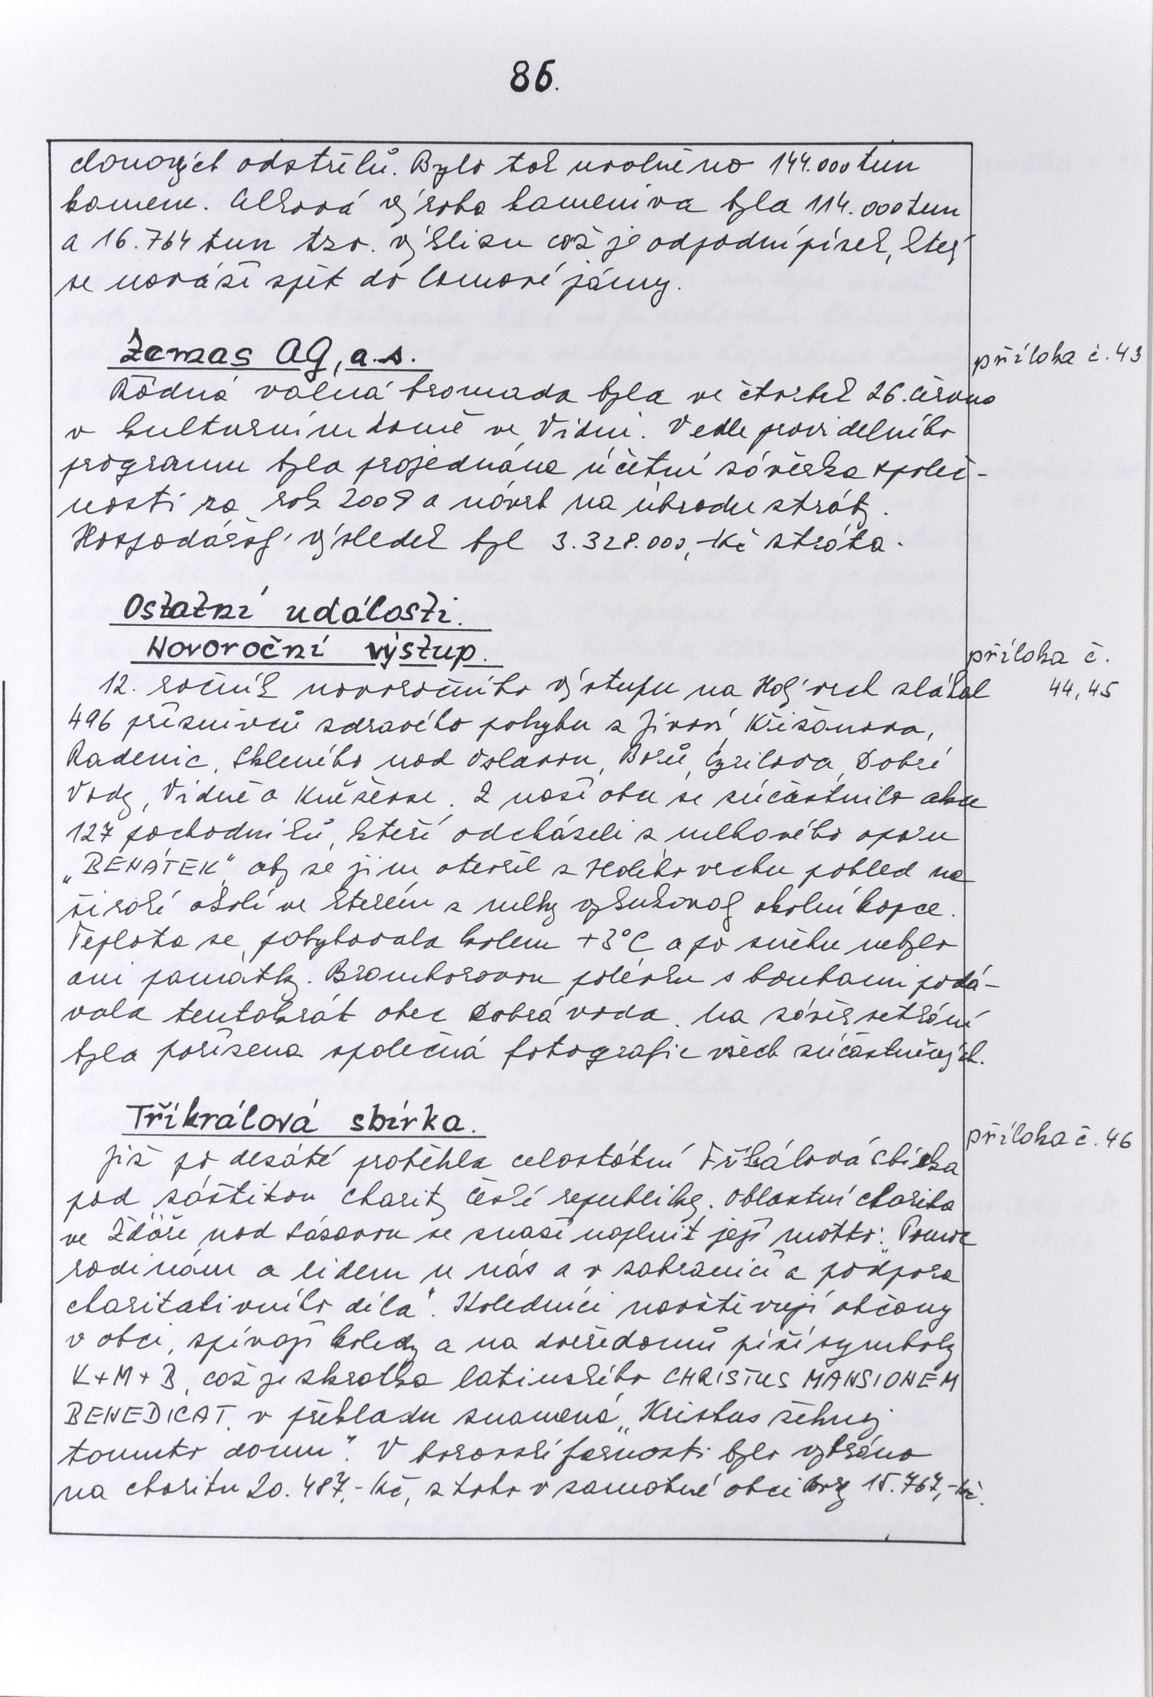 86.
clonových odstřelů. Bylo tak uvolněno 144.000 tun
kamene. Celková výroba kameniva byla 114.000 tun
a 16.764 tun tzv. výklizu což je odpadní písek, který
se naváží zpět do lomové jámy.
Zemas AG, a.s.
příloha č. 43
Řádná valná hromada byla ve čtvrtek 26. června
v kulturním domě ve Vídni. Vedle pravidelného
programu byla projednána účetní závěrka společ-
nosti za rok 2009 a návrh na úhradu ztráty.
Hospodářský výsledek byl 3.328.000,-Kč ztráta.
Ostatní události.
Novoroční výstup.
příloha č.
44,45
12. ročník novoročního výstupu na Holý vrch zlákal
496 příznivců zdravého pohybu z Jívoví, Křižanova,
Radenic, Skleného nad Oslavou, Borů, Cyrilova, Dobré
Vody, Vídně a Kněževse. Z naší obce se zúčastnilo akce
127 pochodníků, kteří odcházeli z mlhového oparu
„BENÁTEK“ aby se jim otevřel z Holého vrchu pohled na
široké okolí ve kterém z mlhy vykukovaly okolní kopce.
Teplota se pohybovala kolem +3°C a po sněhu nebylo
ani památky. Bramborovou polévku s houbami podá-
vala tentokrát obec Dobrá voda. Na závěr setkání
byla pořízena společná fotografie všech zúčastněných.
Tříkrálová sbírka.
příloha č. 46
Již po desáté proběhla celostátní Tříkrálová sbírka
pod záštitou charity České republiky. Oblastní charita
ve Žďáře nad Sázavou se snaží naplnit její motto: „Pomoc
rodinám a lidem u nás a v zahraničí a podpora
charitativního díla“. Koledníci navštěvují občany
v obci, zpívají koledy a na dveře domů píší symboly
K+M+B, což je zkratka latinského CHRISTUS MANSIONEM
BENEDICAT, v překladu znamená „Kristus žehnej
tomuto domu“. V borovské farnosti bylo vybráno
na charitu 20.487,-Kč, z toho v samotné obci Bory 15.767,-Kč.